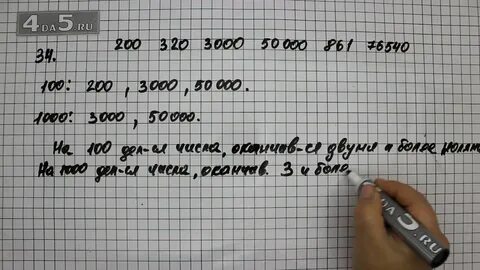 4DA5.RU
34. 200 320 3000 50 000 861 76540
100: 200, 3000, 50 000.
1000: 3000, 50 000.
На 100 дел-ся числа, оканчив-ся двумя и более нолям
На 1000 дел-ся числа, оканчив. 3 и боле
4DA5.RU